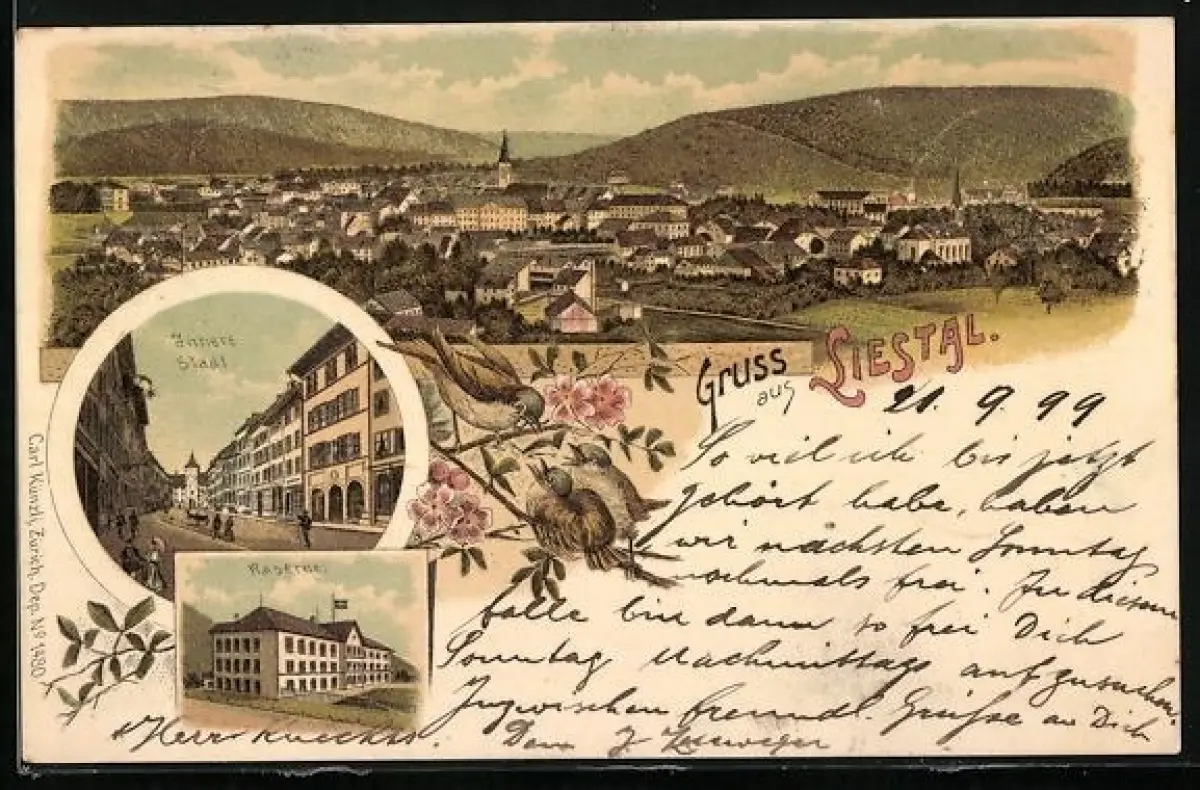 Innere
Stadt
Kaserne.
Carl Künzli, Zürich, Dep. Nº 1480
Gruss
aus
Liestal.
21. 9. 99
So viel ich bis jetzt
gehört habe, haben
wir nächsten Sonntag
nochmals frei. In diesem
falle bin dann so frei Dich
Sonntag Nachmittags aufzusuchen.
Inzwischen freundl. Grüsse an Dich
Herr
Dein J